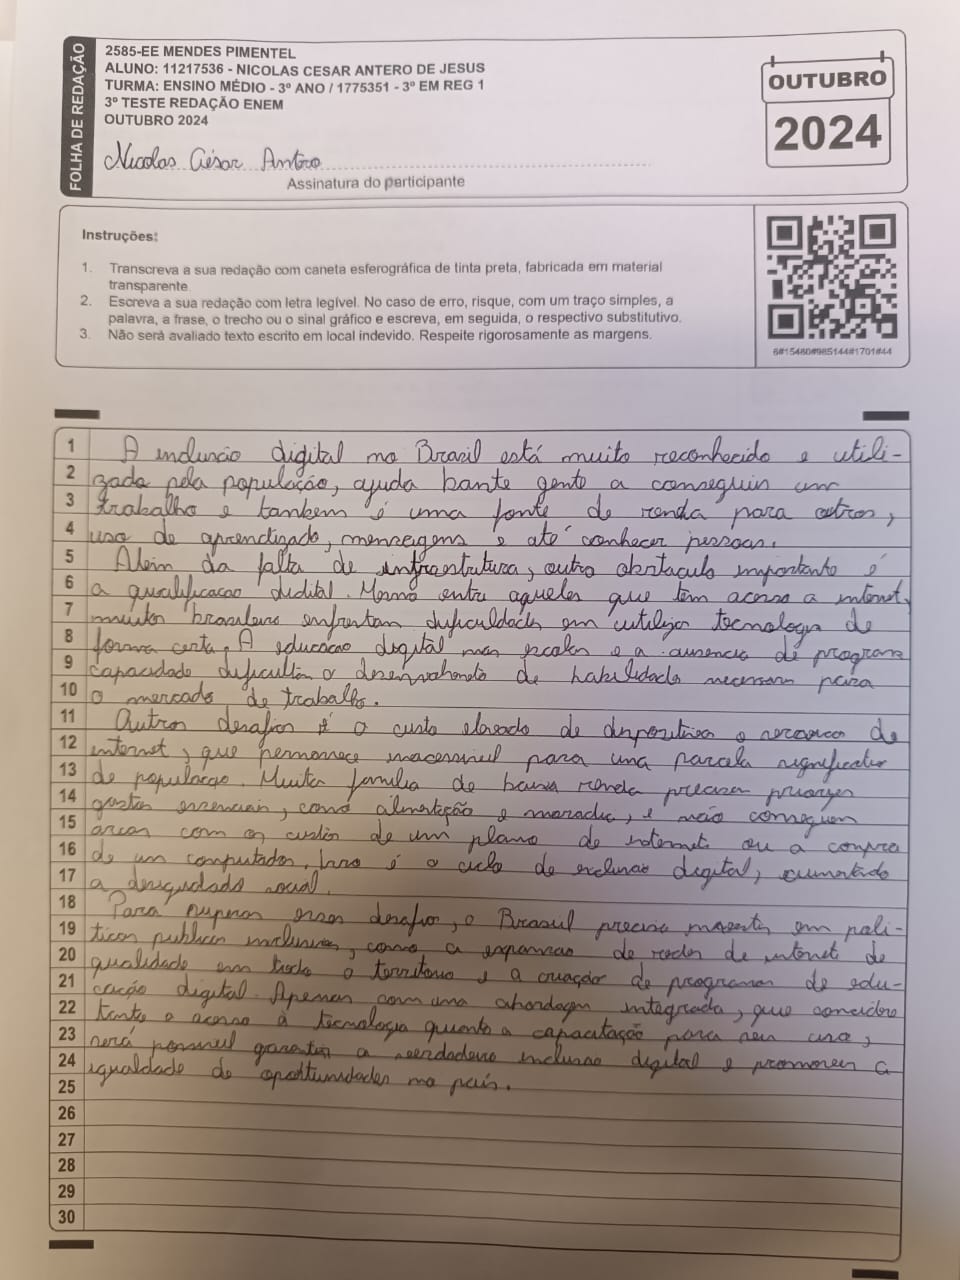 FOLHA DE REDAÇÃO
2585-EE MENDES PIMENTEL
ALUNO: 11217536 - NICOLAS CESAR ANTERO DE JESUS
TURMA: ENSINO MÉDIO - 3º ANO / 1775351 - 3º EM REG 1
3º TESTE REDAÇÃO ENEM
OUTUBRO 2024
Nicolas César Antero
Assinatura do participante
OUTUBRO
2024
Instruções:
1. Transcreva a sua redação com caneta esferográfica de tinta preta, fabricada em material
transparente.
2. Escreva a sua redação com letra legível. No caso de erro, risque, com um traço simples, a
palavra, a frase, o trecho ou o sinal gráfico e escreva, em seguida, o respectivo substitutivo.
3. Não será avaliado texto escrito em local indevido. Respeite rigorosamente as margens.
6#15480#985144#1701#44
1 A inclusão digital no Brasil está muito reconhecido e utili-
2 zada pela população, ajuda bante gente a conseguir um
3 trabalho e tanbem é uma fonte de renda para outros,
4 uso de aprendizado, mensagens e até conhecer pessoas.
5 Alem da falta de infraestrutura, outro obstaculo importante é
6 a qualificacao didital. Mesmo entre aqueles que têm acesso a internet,
7 muitos brasileiro enfrentam dificuldades em utilizar tecnologia de
8 forma certa. A educacao digital nas escolas e a ausencia de programa
9 capacidade dificultão o desenvolvimento de habilidade necessaria para
10 o mercado de trabalho.
11 Outros desafios É o custo elevado de dispositivos e servico de
12 internet, que permanece inacessivel para uma parcela significativa
13 de populaçao. Muita familia de baixa renda precisa priorizar
14 gastos essenciais, como alimentação e moradia, e não conseguem
15 arcar com os custos de um plano de internet ou a compra
16 de um computador. Isso é o ciclo de exclusao digital, aumentado
17 a desigualdade social.
18 Para superar esses desafios, o Brasil precisa investir em poli-
19 ticas publicas inclusivas, como a expansao de redes de internet de
20 qualidade em todo o territorio e a criação de programas de edu-
21 cação digital. Apenas com uma abordagem integrada, que considere
22 tanto o acesso à tecnologia quanto a capacitação para seu uso,
23 será possivel garantir a verdadeira inclusao digital e promover a
24 igualdade de oportunidades no país.
25
26
27
28
29
30